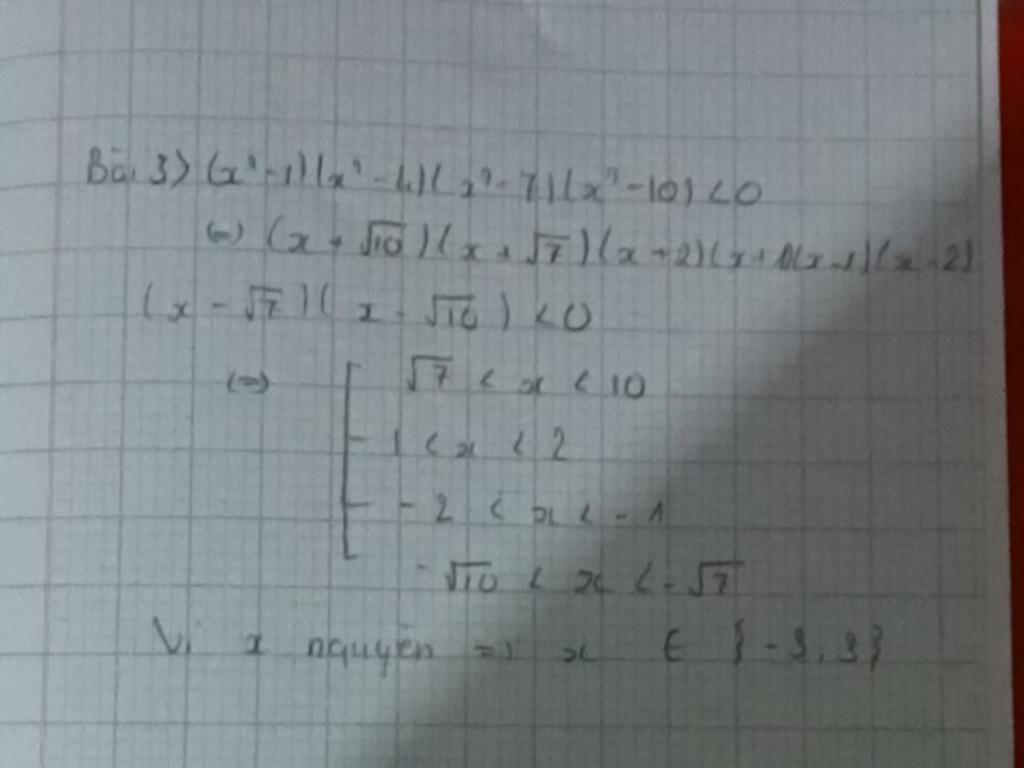 Bài 3) (x²-1)(x²-4)(x²-7)(x²-10) <0
(=) (x + √10)(x + √7)(x+2)(x+1)(x-1)(x-2)
(x - √7)(x - √10) <0
(=) √7 < x < 10
1 < x < 2
-2 < x < -1
-√10 < x < -√7
Vì x nguyên => x ∈ {-3,3}